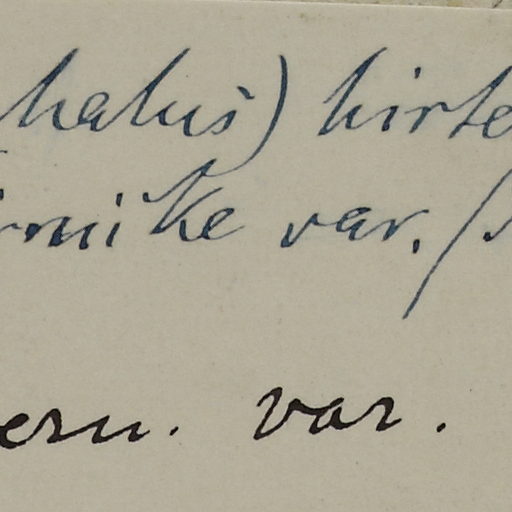 halus) hirte
rnicke var. (
ern. var.